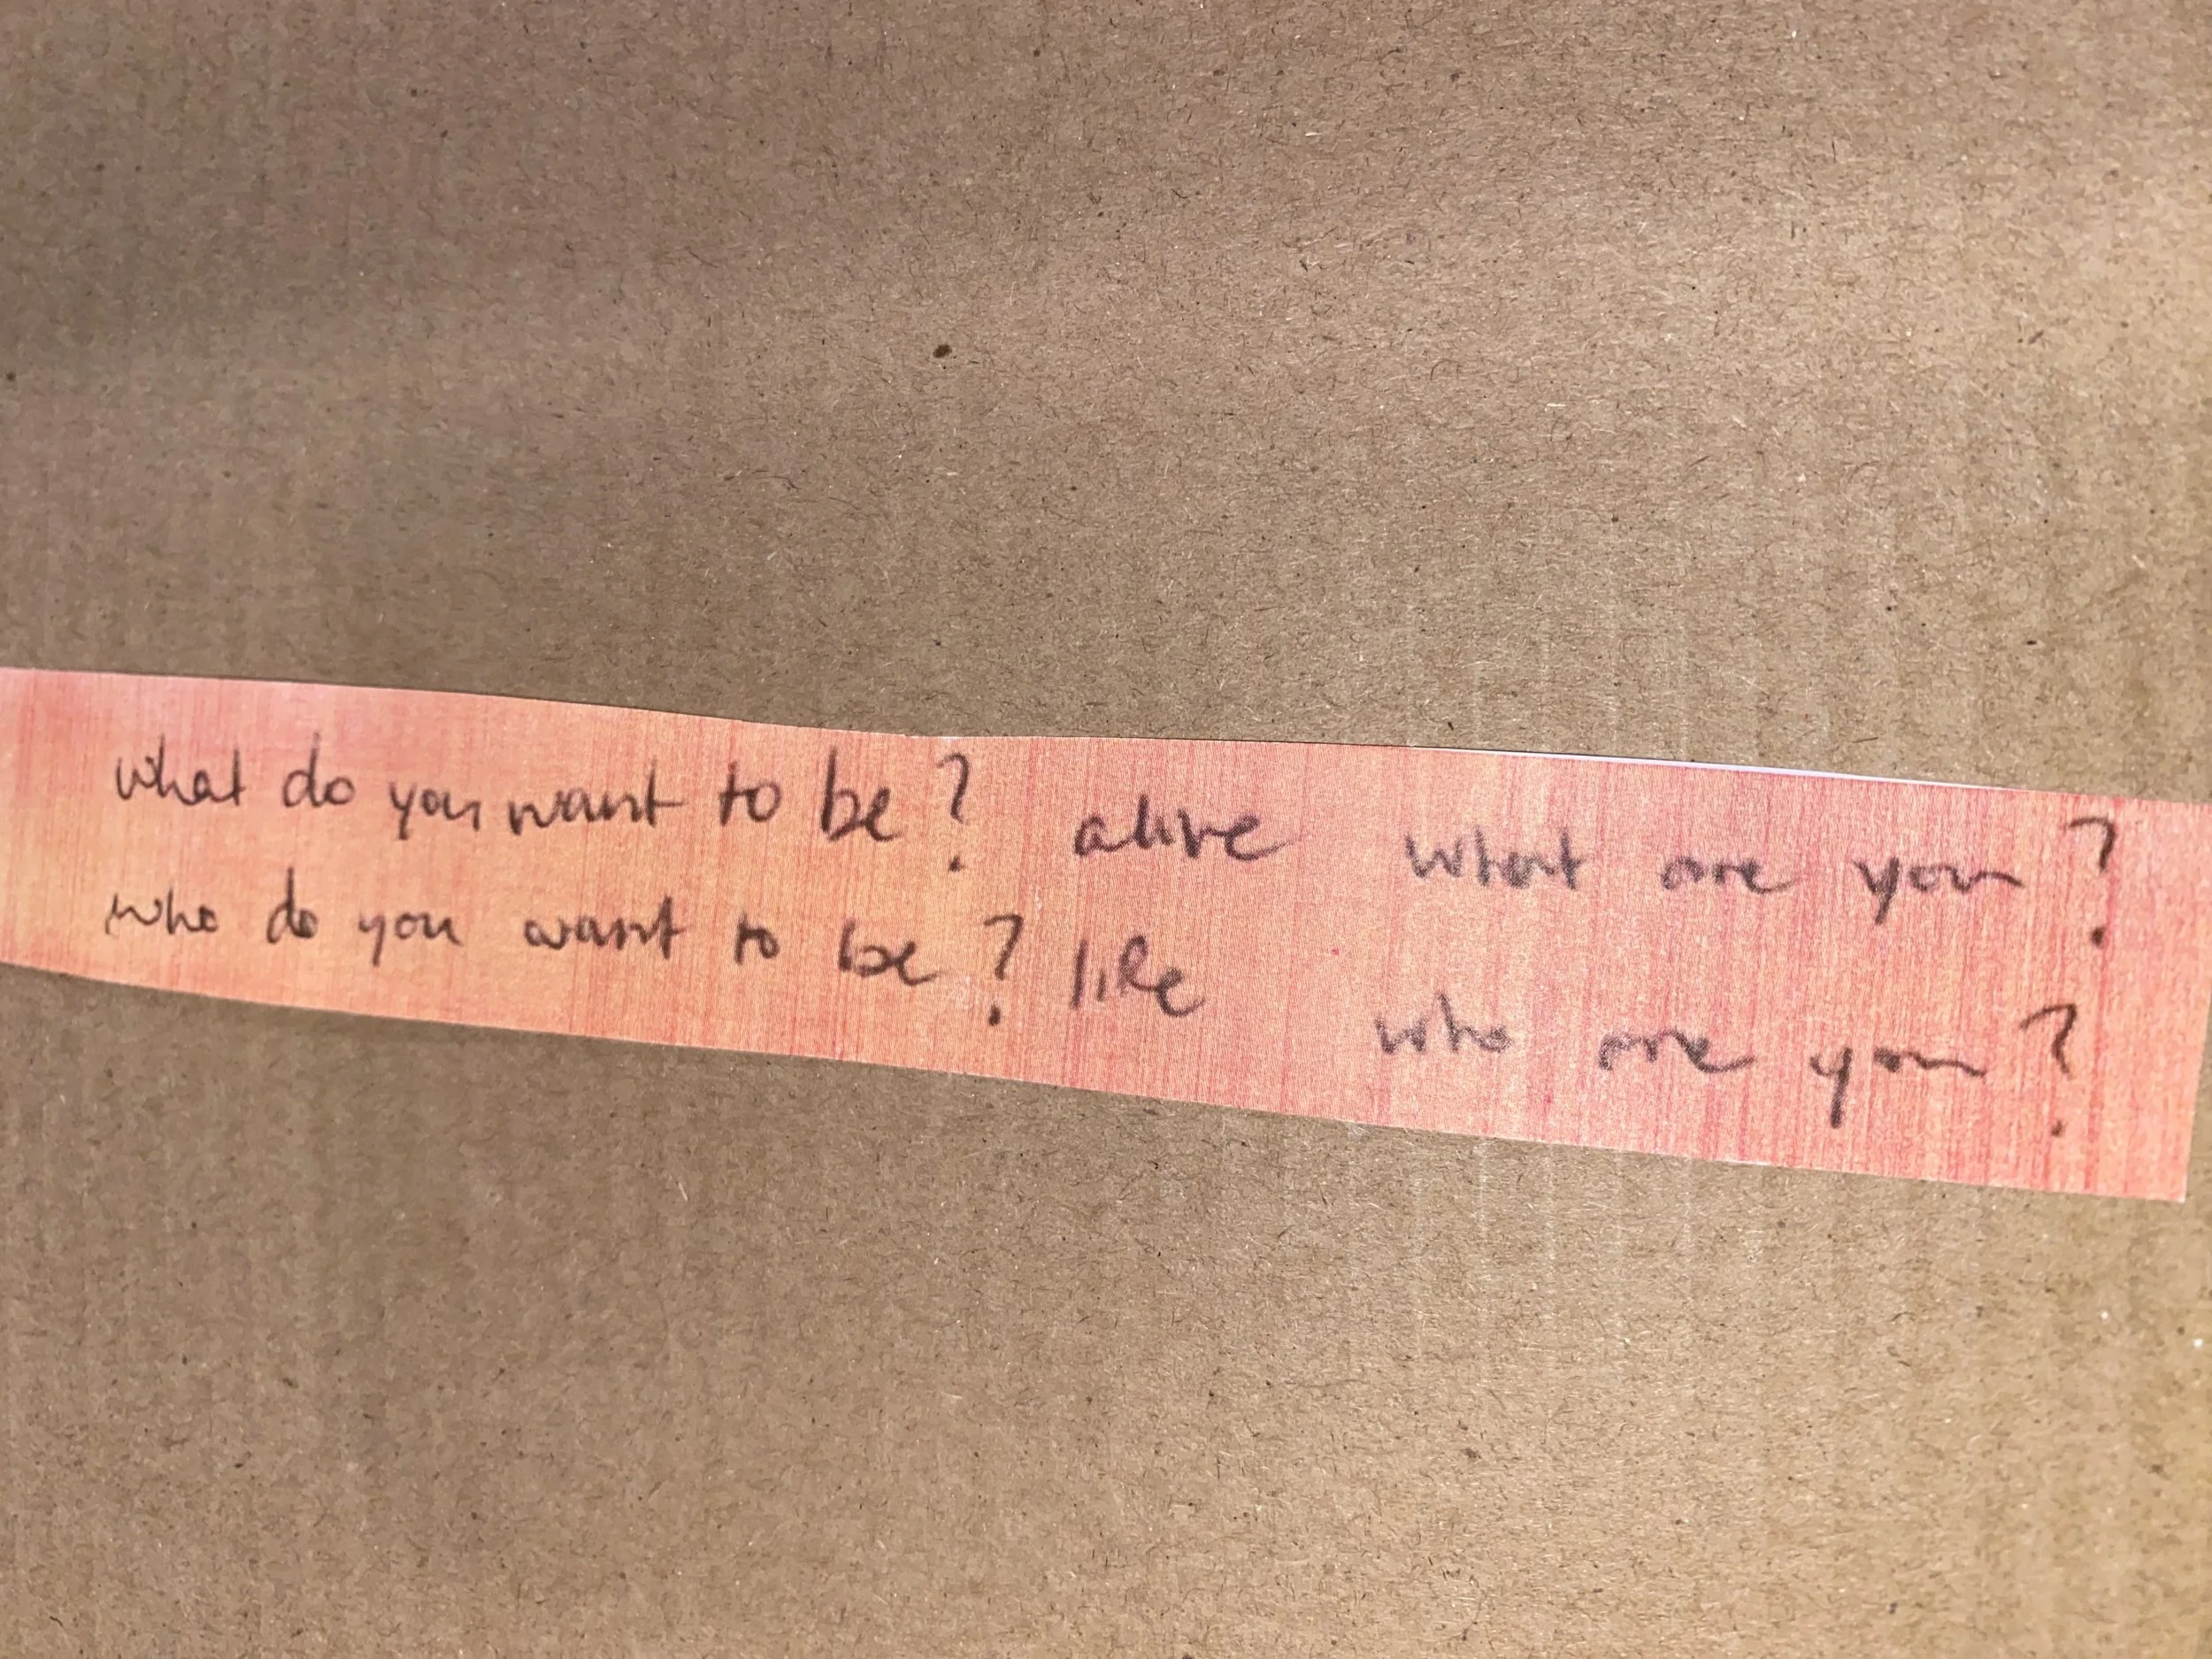 what do you want to be? alive what are you?
who do you want to be? life who are you?